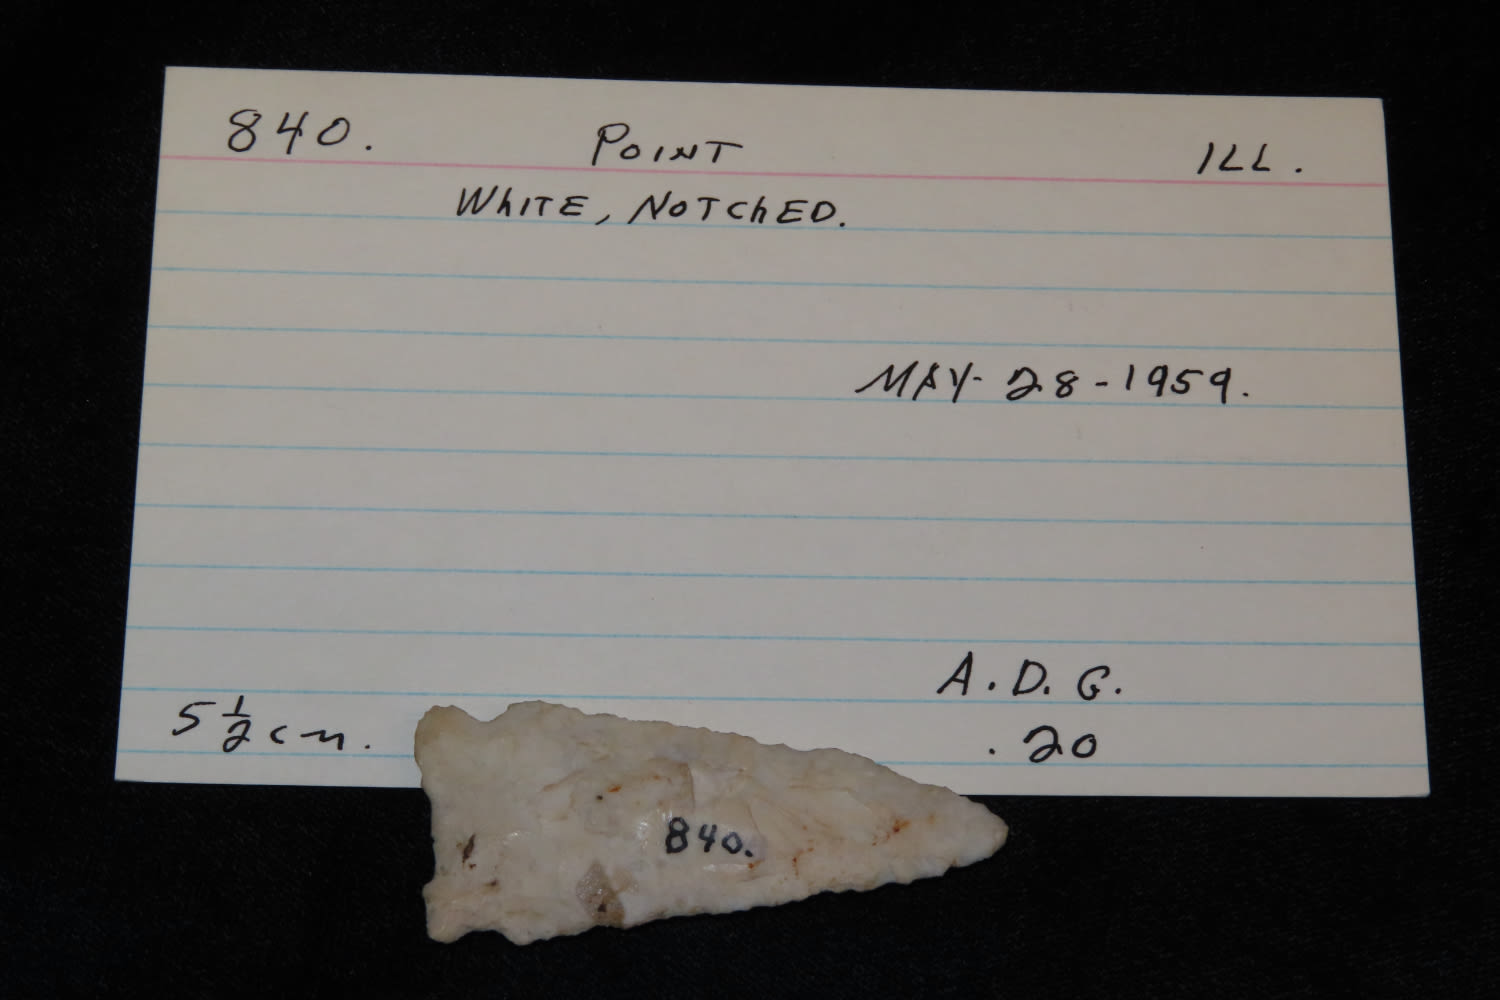 840. POINT ILL.
WhITE, NOTChED.
MAY- 28-1959.
A.D.G.
5 1/2 cm. .20
840.